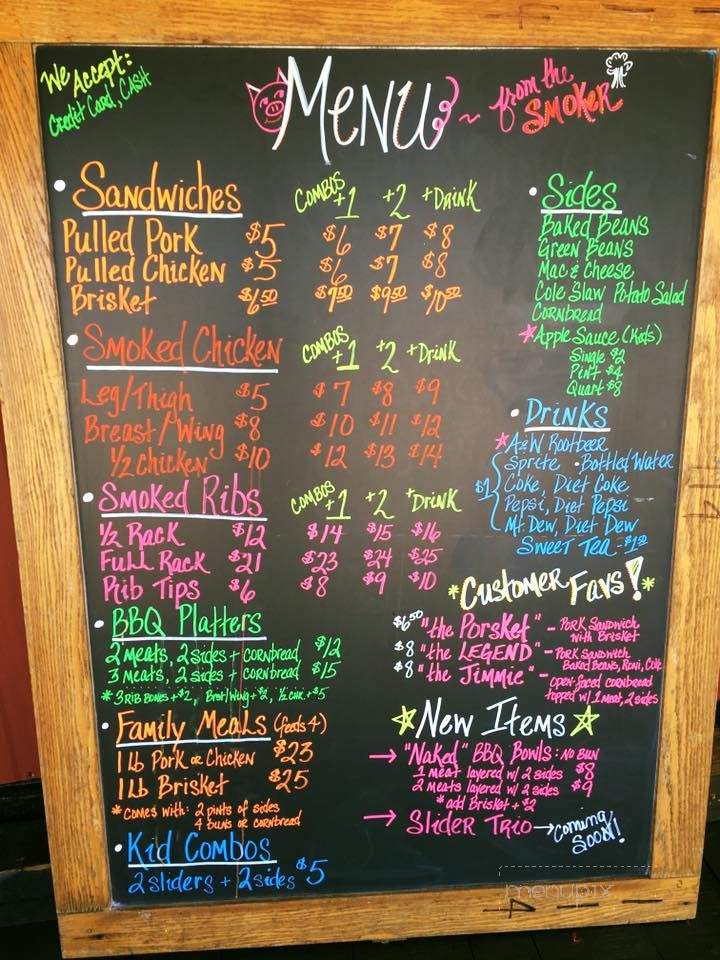 We Accept:
Credit Card, CASH
MENU ~ from the SMOKER
• Sandwiches COMBOS +1 +2 +DRINK
Pulled Pork $5 $6 $7 $8
Pulled Chicken $5 $6 $7 $8
Brisket $6.50 $7.50 $9.50 $10.50
• Smoked Chicken COMBOS +1 +2 +DRINK
Leg/Thigh $5 $7 $8 $9
Breast/Wing $8 $10 $11 $12
1/2 Chicken $10 $12 $13 $14
• Smoked Ribs COMBOS +1 +2 +DRINK
1/2 Rack $12 $14 $15 $16
Full Rack $21 $23 $24 $25
Rib Tips $6 $8 $9 $10
• BBQ Platters
2 meats, 2 sides + cornbread $12
3 meats, 2 sides + cornbread $15
* 3 RIB BONES + $2, Brst/Wing + $2, 1/2 chix. + $5
• Family Meals (feeds 4)
1 lb Pork or Chicken $23
1 lb Brisket $25
* comes with: 2 pints of sides
4 buns or cornbread
• Kid Combos
2 sliders + 2 sides $5
• Sides
Baked Beans
Green Beans
Mac & Cheese
Cole Slaw Potato Salad
Cornbread
* Apple Sauce (Kids)
Single $2
Pint $4
Quart $8
• Drinks
* A&W Rootbeer
Sprite • Bottled Water
$1 Coke, Diet Coke
Pepsi, Diet Pepsi
Mt Dew, Diet Dew
Sweet Tea - $1.50
* Customer Favs! *
$6.50 "the Porsket" - Pork Sandwich
with Brisket
$8 "the LEGEND" - Pork Sandwich
Baked Beans, Roni, Coke
$8 "the Jimmie" - open-faced cornbread
topped w/ 1 meat, 2 sides
New Items
→ "Naked" BBQ Bowls: NO BUN
1 meat layered w/ 2 sides $8
2 meats layered w/ 2 sides $9
* add Brisket + $2
→ Slider Trio → Coming
Soon!
menupix